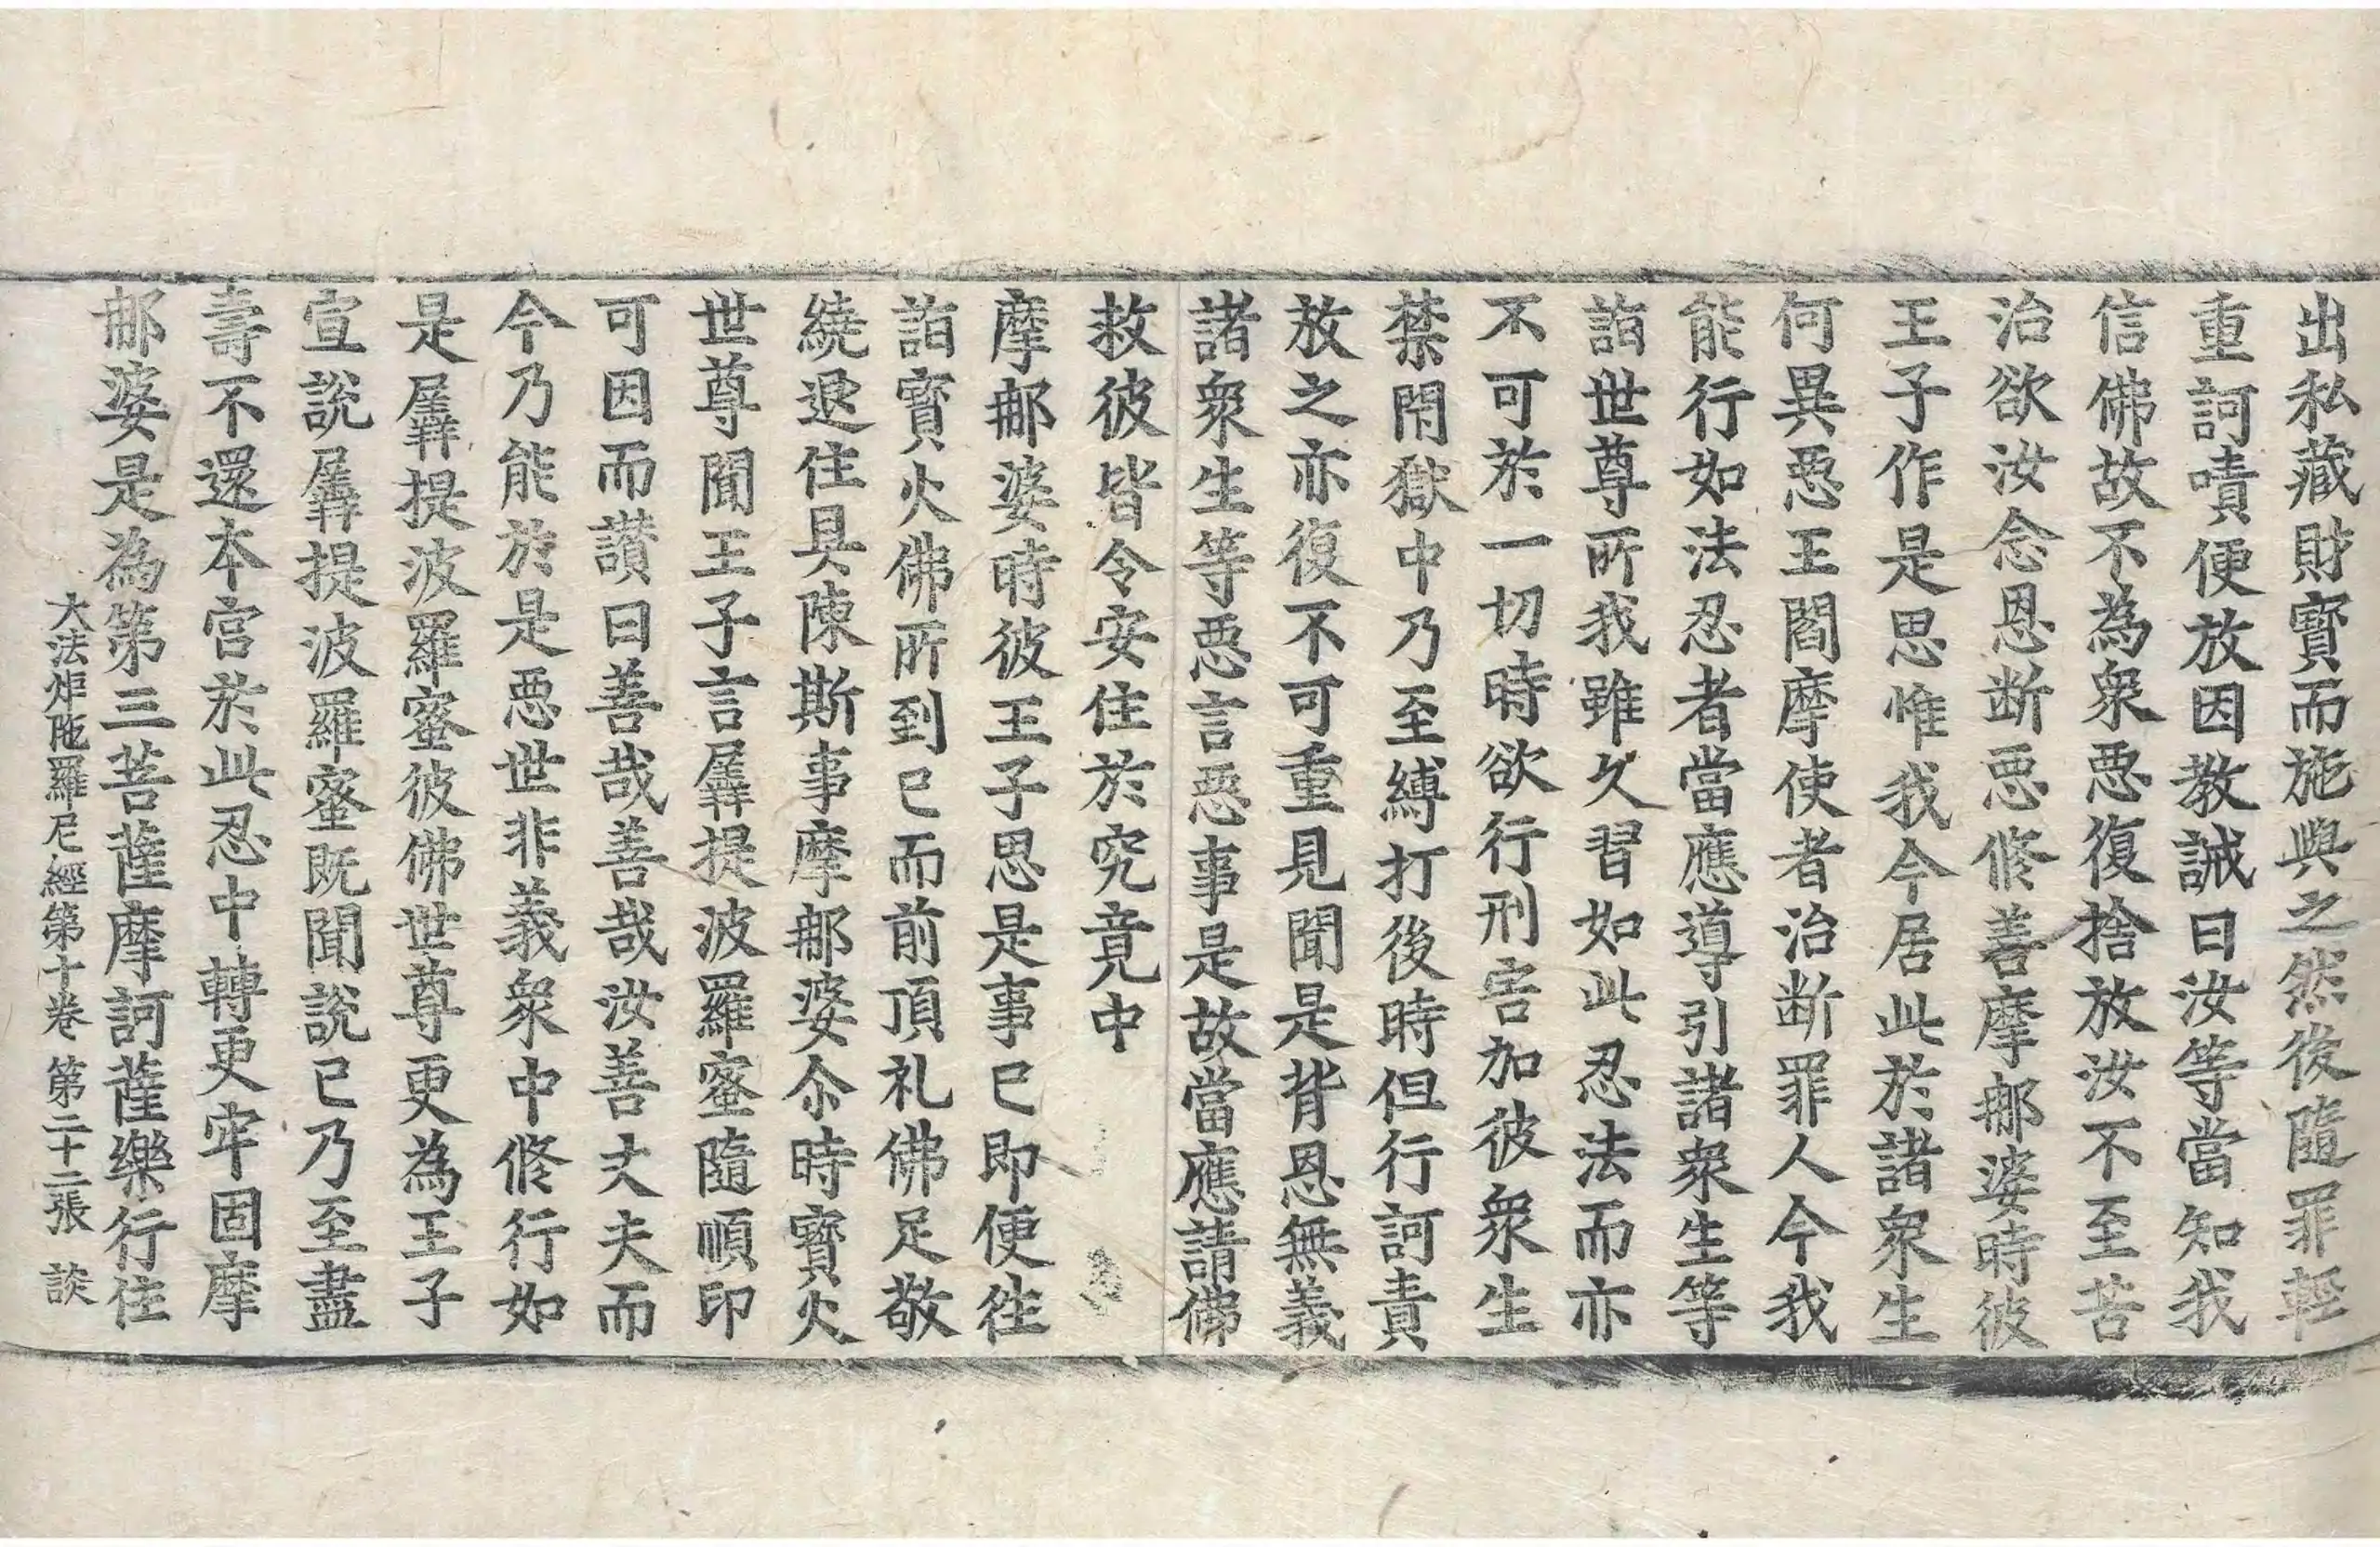 出私藏財寶而施與之然後隨罪輕
重訶嘖便放因教誡曰汝等當知我
信佛故不為衆惡復捨放汝不至苦
治欲汝念恩断惡修善摩郍婆時彼
王子作是思惟我今居此於諸衆生
何異惡王閻摩使者治断罪人今我
能行如法忍者當應導引諸衆生等
詣世尊所我雖久習如此忍法而亦
不可於一切時欲行刑害加彼衆生
禁閇獄中乃至縛打後時但行訶責
放之亦復不可重見聞是背恩無義
諸衆生等惡言惡事是故當應請佛
救彼皆令安住於究竟中
摩郍婆時彼王子思是事已即便往
詣寳火佛所到已而前頂礼佛足敬
繞退住具陳斯事摩郍婆尒時寶火
世尊聞王子言羼提波羅蜜隨順印
可因而讃曰善哉善哉汝善丈夫而
今乃能於是惡世非義衆中修行如
是羼提波羅蜜彼佛世尊更為王子
宣說羼提波羅蜜既聞說已乃至盡
壽不還本宫於此忍中轉更牢固摩
郍婆是為第三菩薩摩訶薩樂行住
大法炬陁羅尼經第十卷 第二十二張 談